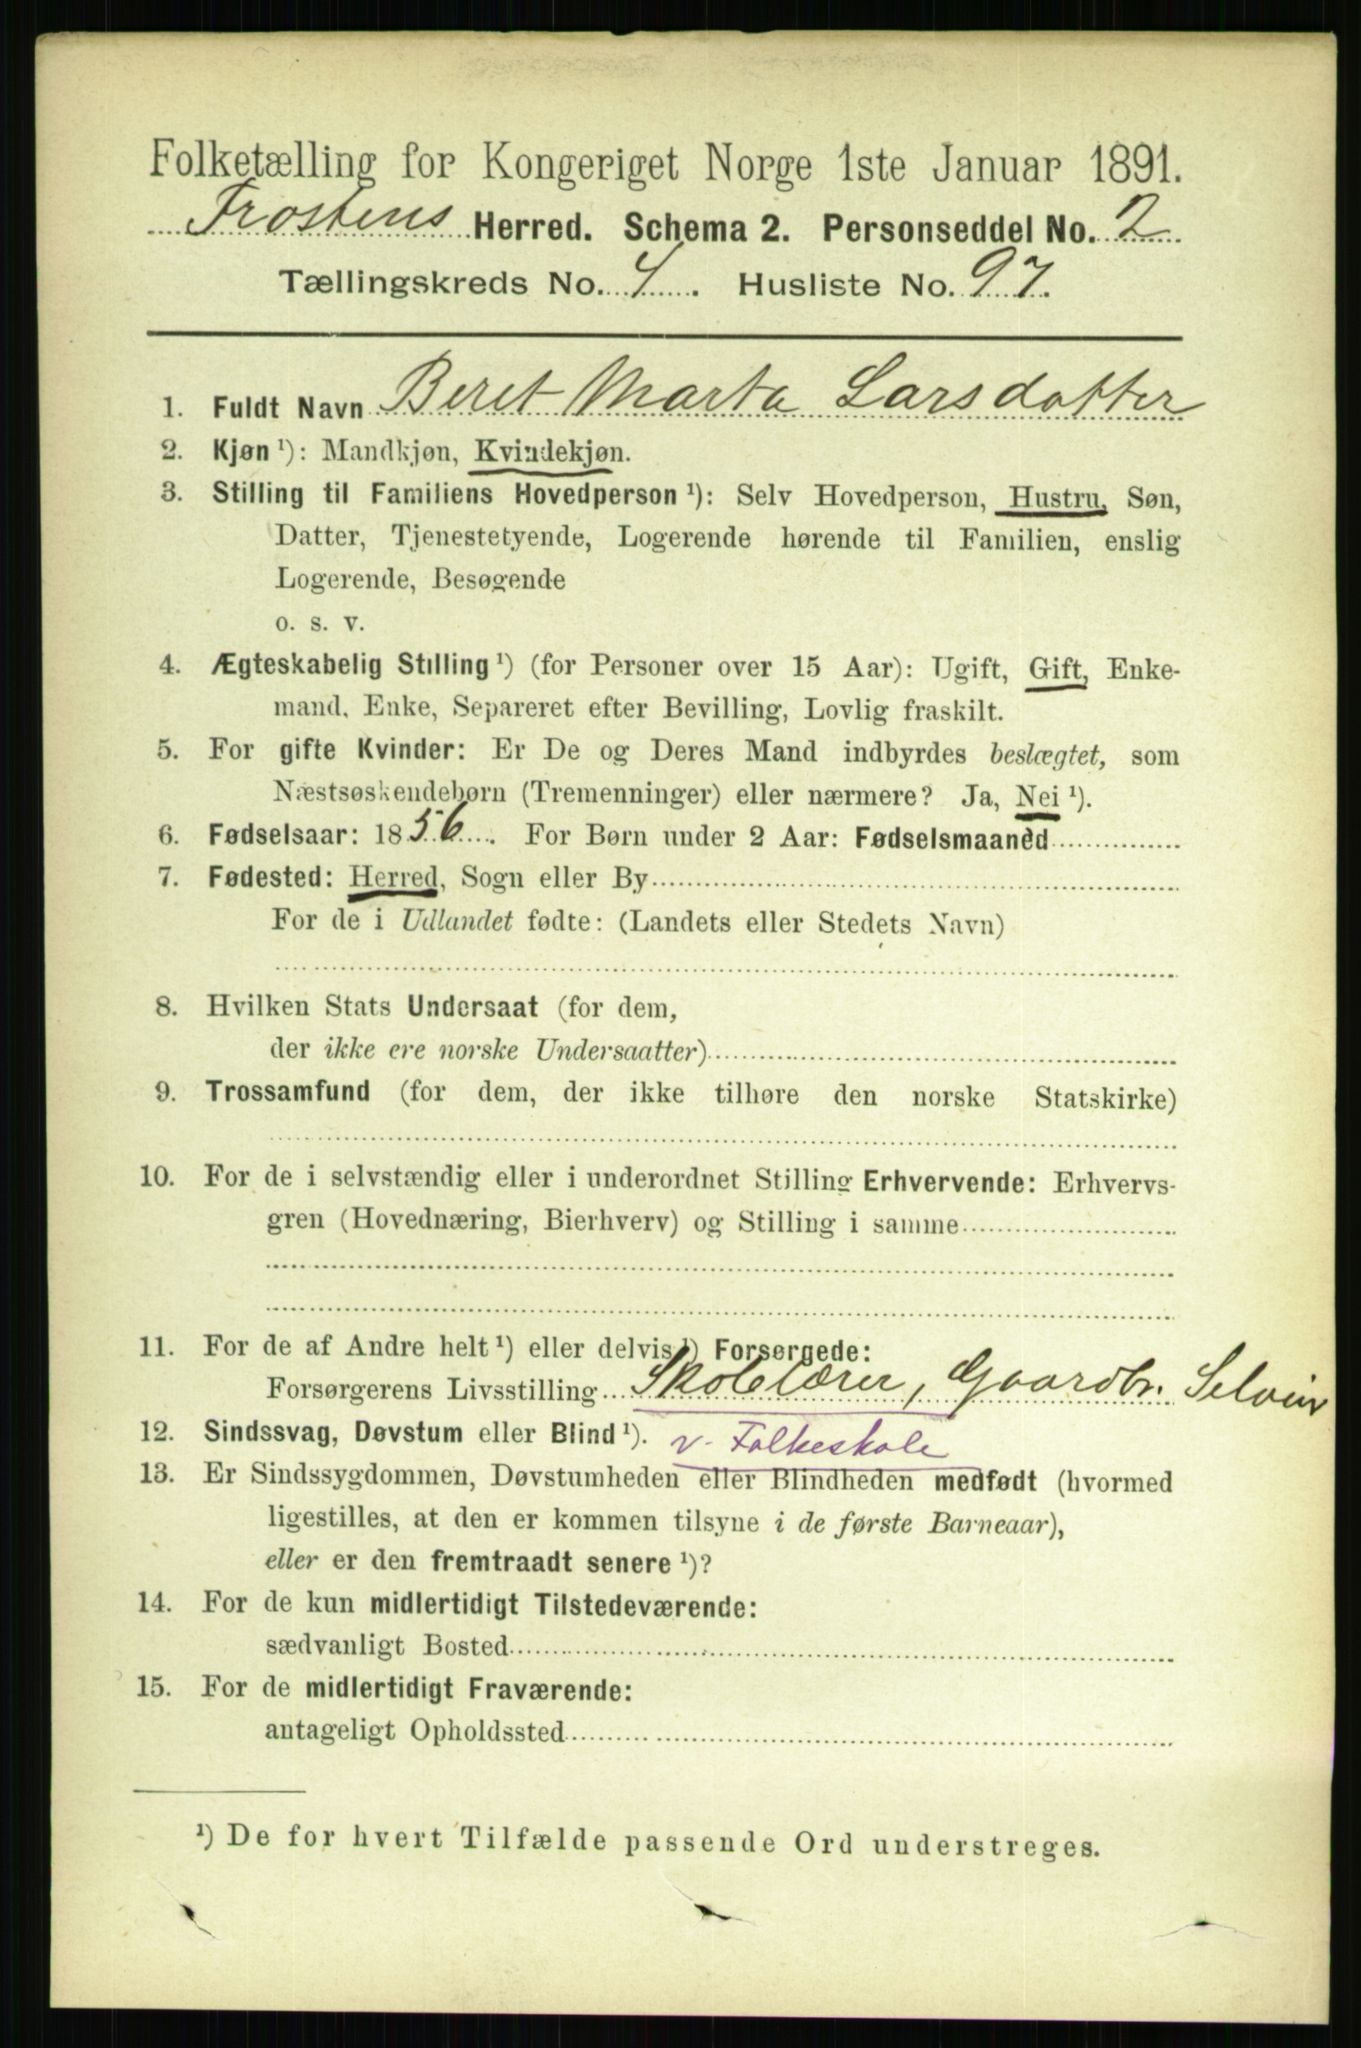 Folketælling for Kongeriget Norge 1ste Januar 1891.
Frostens Herred. Schema 2. Personseddel No. 2
Tællingskreds No. 4. Husliste No. 97.
1. Fuldt Navn Beret Marta Larsdatter
2. Kjøn ¹): Mandkjøn, Kvindekjøn.
3. Stilling til Familiens Hovedperson ¹): Selv Hovedperson, Hustru, Søn,
Datter, Tjenestetyende, Logerende hørende til Familien, enslig
Logerende, Besøgende
o. s. v.
4. Ægteskabelig Stilling ¹) (for Personer over 15 Aar): Ugift, Gift, Enke-
mand, Enke, Separeret efter Bevilling, Lovlig fraskilt.
5. For gifte Kvinder: Er De og Deres Mand indbyrdes beslægtet, som
Næstsøskendebørn (Tremenninger) eller nærmere? Ja, Nei ¹).
6. Fødselsaar: 1856. For Børn under 2 Aar: Fødselsmaaned
7. Fødested: Herred, Sogn eller By
For de i Udlandet fødte: (Landets eller Stedets Navn)
8. Hvilken Stats Undersaat (for dem,
der ikke ere norske Undersaatter)
9. Trossamfund (for dem, der ikke tilhøre den norske Statskirke)
10. For de i selvstændig eller i underordnet Stilling Erhvervende: Erhvervs-
gren (Hovednæring, Bierhverv) og Stilling i samme
11. For de af Andre helt ¹) eller delvis ¹) Forsørgede:
Forsørgerens Livsstilling Skolelærer, Gaardbr. Seloier
12. Sindssvag, Døvstum eller Blind ¹). v. Folkeskole
13. Er Sindssygdommen, Døvstumheden eller Blindheden medfødt (hvormed
ligestilles, at den er kommen tilsyne i de første Barneaar),
eller er den fremtraadt senere ¹)?
14. For de kun midlertidigt Tilstedeværende:
sædvanligt Bosted
15. For de midlertidigt Fraværende:
antageligt Opholdssted
¹) De for hvert Tilfælde passende Ord understreges.